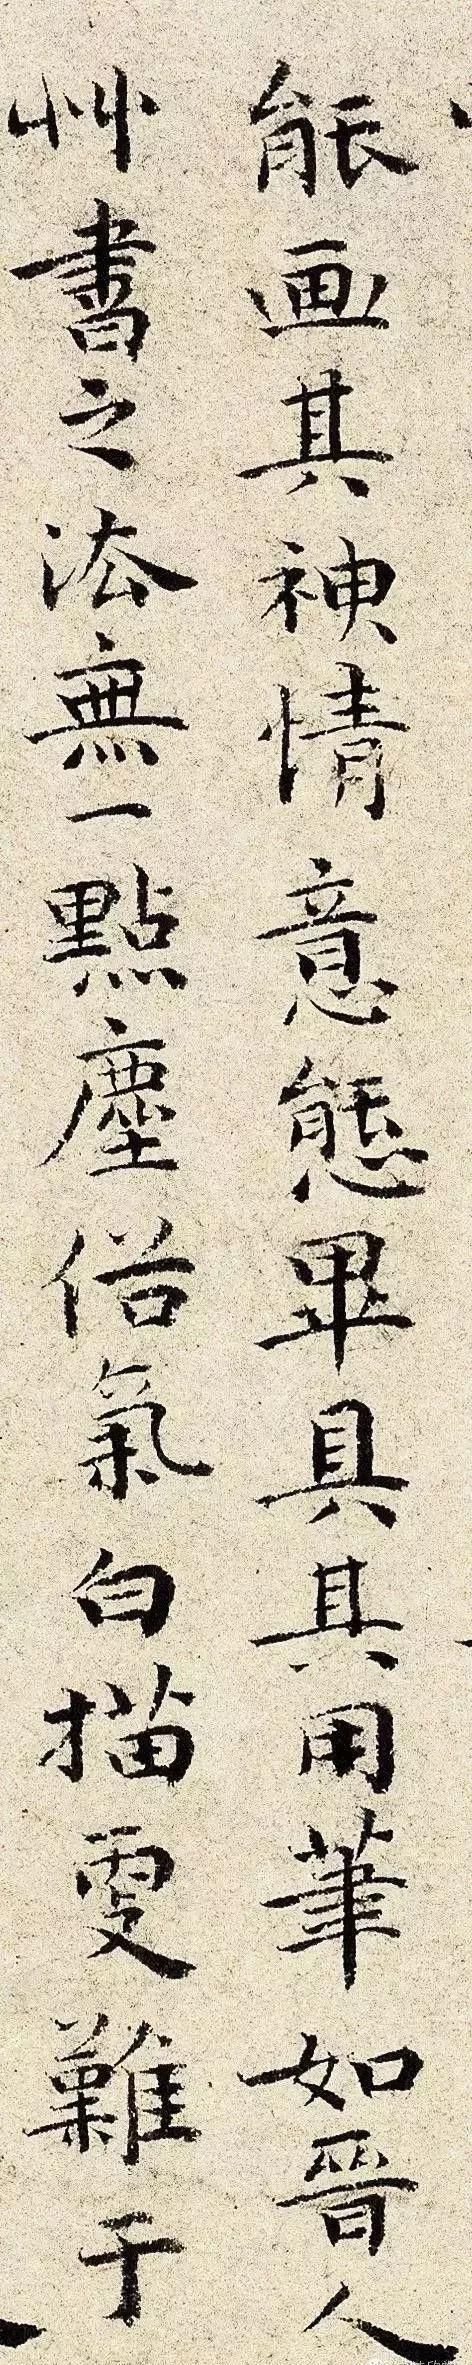 能画其神情意態畢具其用筆如晉人
艸書之法無一點塵俗氣白描更難于